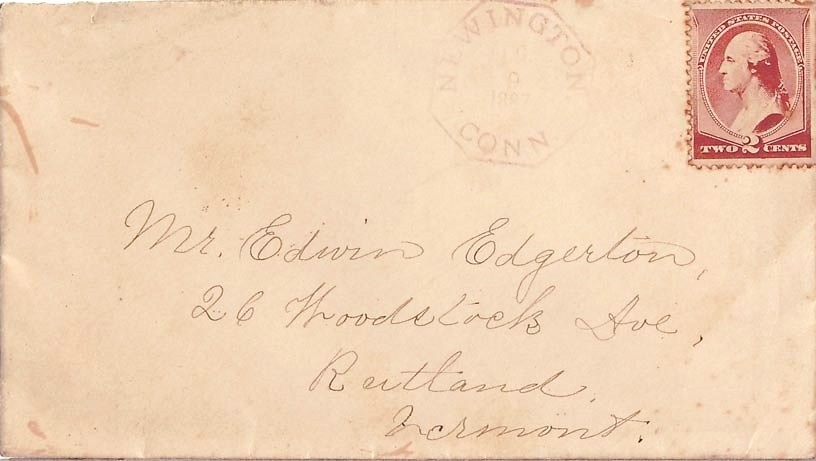 NEWINGTON
6
1887
CONN
UNITED STATES POSTAGE
TWO 2 CENTS
Mr. Edwin Edgerton,
26 Woodstock Ave,
Rutland,
Vermont.